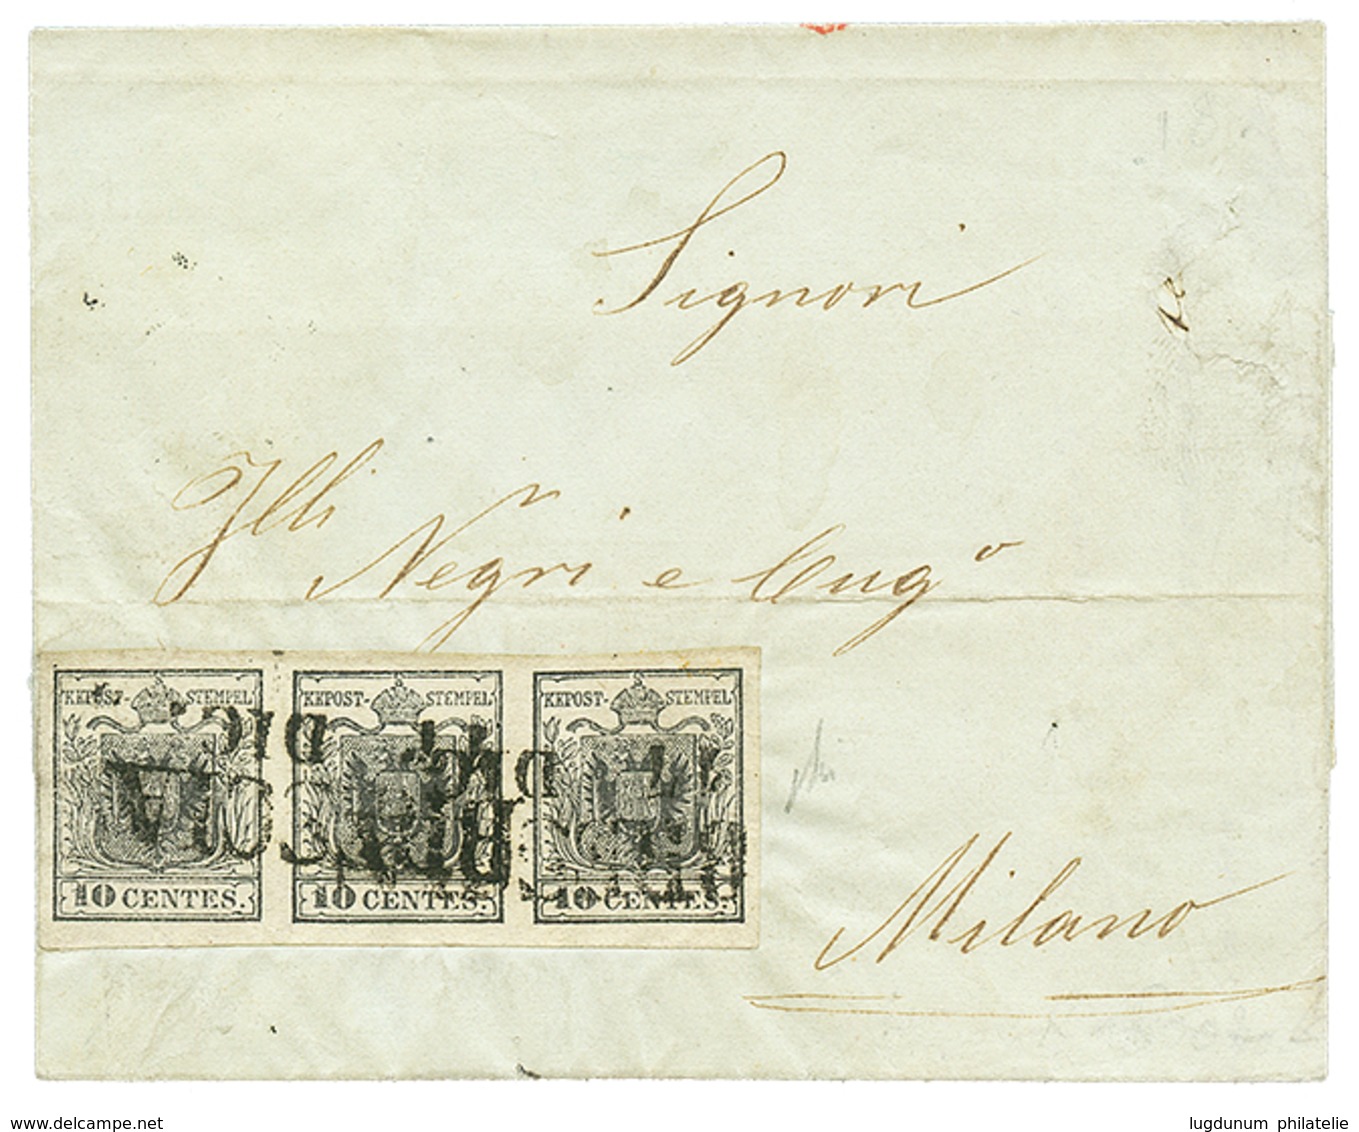 Signori
Flli Negri e Cug°
KKPOST-STEMPEL KKPOST-STEMPEL KKPOST-STEMPEL
DIC. DIC.
10 CENTES. 10 CENTES. 10 CENTES.
Milano
www.delcampe.net
lugdunum philatelie